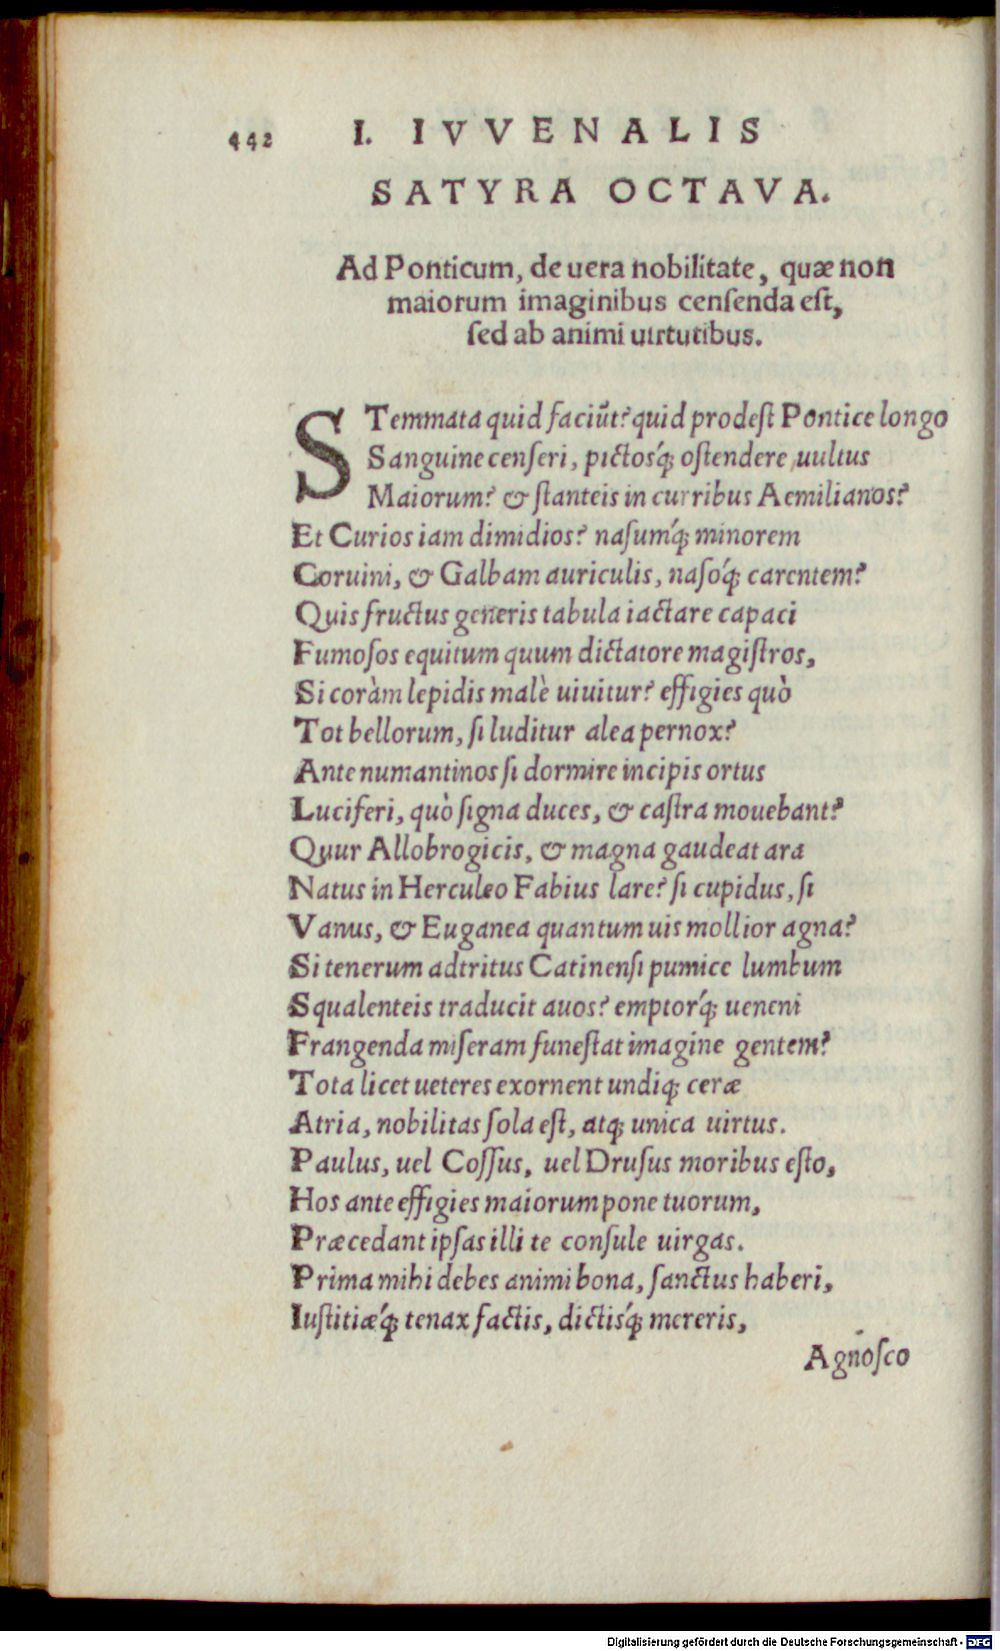 442 I. IVVENALIS
SATYRA OCTAVA.
Ad Ponticum, de uera nobilitate, quæ non
maiorum imaginibus censenda est,
sed ab animi uirtutibus.
STemmata quid faciūt? quid prodest Pontice longo
Sanguine censeri, pictosq́; ostendere uultus
Maiorum? & stanteis in curribus Aemilianos?
Et Curios iam dimidios? nasumq́; minorem
Coruini, & Galbam auriculis, nasoq́; carentem?
Quis fructus generis tabula iactare capaci
Fumosos equitum quum dictatore magistros,
Si coràm lepidis malè uiuitur? effigies quò
Tot bellorum, si luditur alea pernox?
Ante numantinos si dormire incipis ortus
Luciferi, quò signa duces, & castra mouebant?
Quur Allobrogicis, & magna gaudeat ara
Natus in Herculeo Fabius lare? si cupidus, si
Vanus, & Euganea quantum uis mollior agna?
Si tenerum adtritus Catinensi pumice lumbum
Squalenteis traducit auos? emptorq́; ueneni
Frangenda miseram funestat imagine gentem?
Tota licet ueteres exornent undiq; ceræ
Atria, nobilitas sola est, atq; unica uirtus.
Paulus, uel Cossus, uel Drusus moribus esto,
Hos ante effigies maiorum pone tuorum,
Præcedant ipsas illi te consule uirgas.
Prima mihi debes animi bona, sanctus haberi,
Iustitiæq́; tenax factis, dictisq́; mereris,
Agnosco
Digitalisierung gefördert durch die Deutsche Forschungsgemeinschaft - DFG